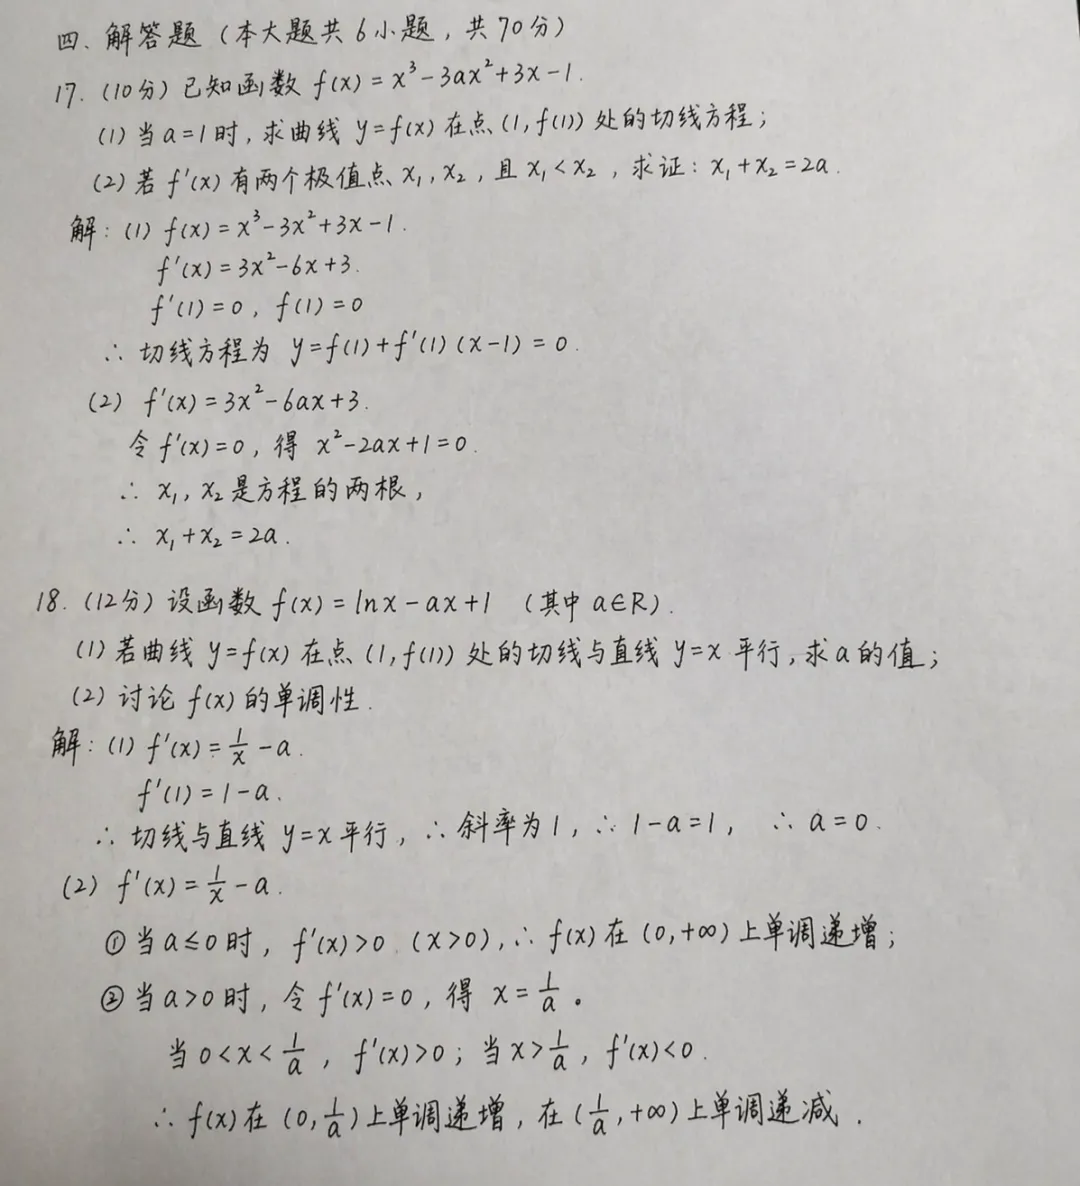 四、解答题（本大题共6小题，共70分）
17.（10分）已知函数 f(x)=x³-3ax²+3x-1.
(1) 当a=1时，求曲线 y=f(x) 在点(1,f(1))处的切线方程；
(2) 若 f'(x) 有两个极值点 x₁,x₂，且 x₁<x₂，求证：x₁+x₂=2a.
解：(1) f(x)=x³-3x²+3x-1.
f'(x)=3x²-6x+3.
f'(1)=0，f(1)=0
∴ 切线方程为 y=f(1)+f'(1)(x-1)=0.
(2) f'(x)=3x²-6ax+3.
令 f'(x)=0，得 x²-2ax+1=0.
∴ x₁,x₂是方程的两根，
∴ x₁+x₂=2a.
18.（12分）设函数 f(x)=lnx-ax+1 （其中 a∈R）.
(1) 若曲线 y=f(x) 在点(1,f(1))处的切线与直线 y=x 平行，求a的值；
(2) 讨论 f(x) 的单调性.
解：(1) f'(x)=1/x-a.
f'(1)=1-a.
∴ 切线与直线 y=x 平行，∴ 斜率为1，∴ 1-a=1， ∴ a=0.
(2) f'(x)=1/x-a.
① 当a≤0时，f'(x)>0 (x>0)，∴ f(x)在(0,+∞)上单调递增；
② 当a>0时，令 f'(x)=0，得 x=1/a。
当0<x<1/a，f'(x)>0；当x>1/a，f'(x)<0.
∴ f(x)在(0,1/a)上单调递增，在(1/a,+∞)上单调递减.